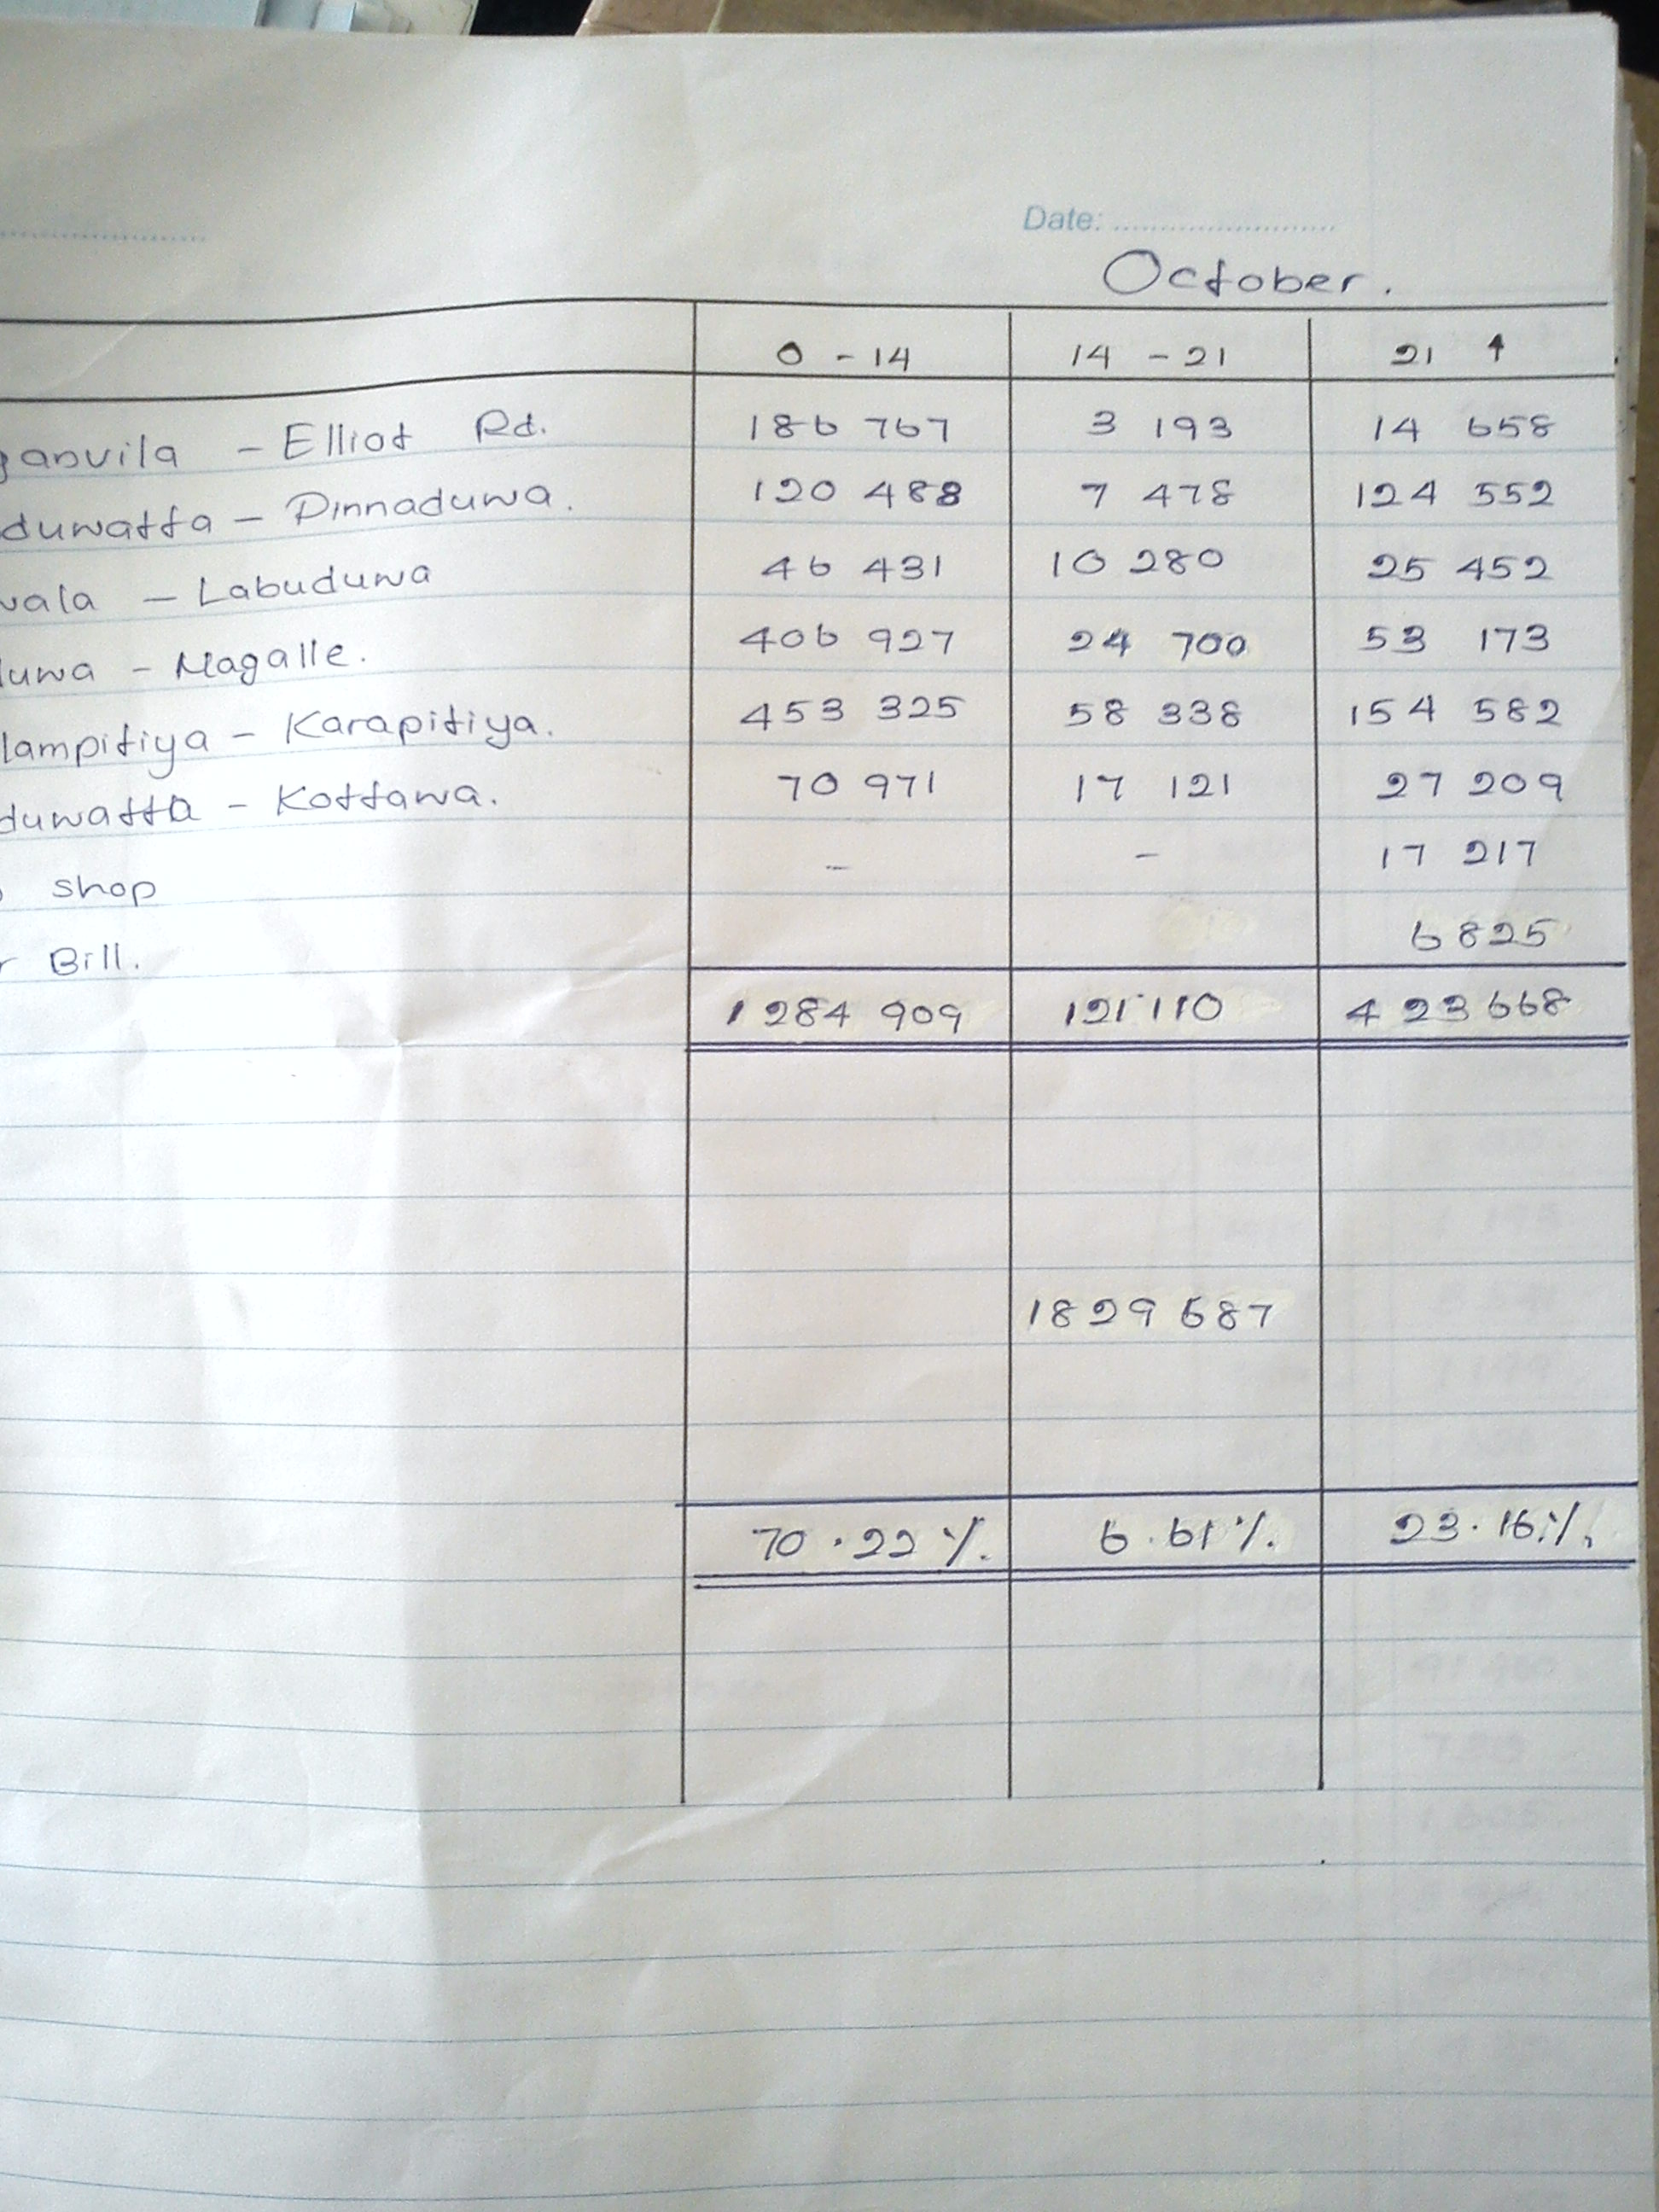 Date: ........................
October.
0 - 14 14 - 21 21 ↑
ganvila - Elliot Rd. 186 767 3 193 14 658
duwatta - Pinnaduwa. 120 488 7 478 124 552
wala - Labuduwa 46 431 10 280 25 452
duwa - Magalle. 406 927 24 700 53 173
lampitiya - Karapitiya. 453 325 58 338 154 582
duwatta - Kottawa. 70 971 17 121 27 209
shop - - 17 217
r Bill. 6825
1 284 909 121 110 423 668
1829 687
70.22 % 6.61 % 23.16 %